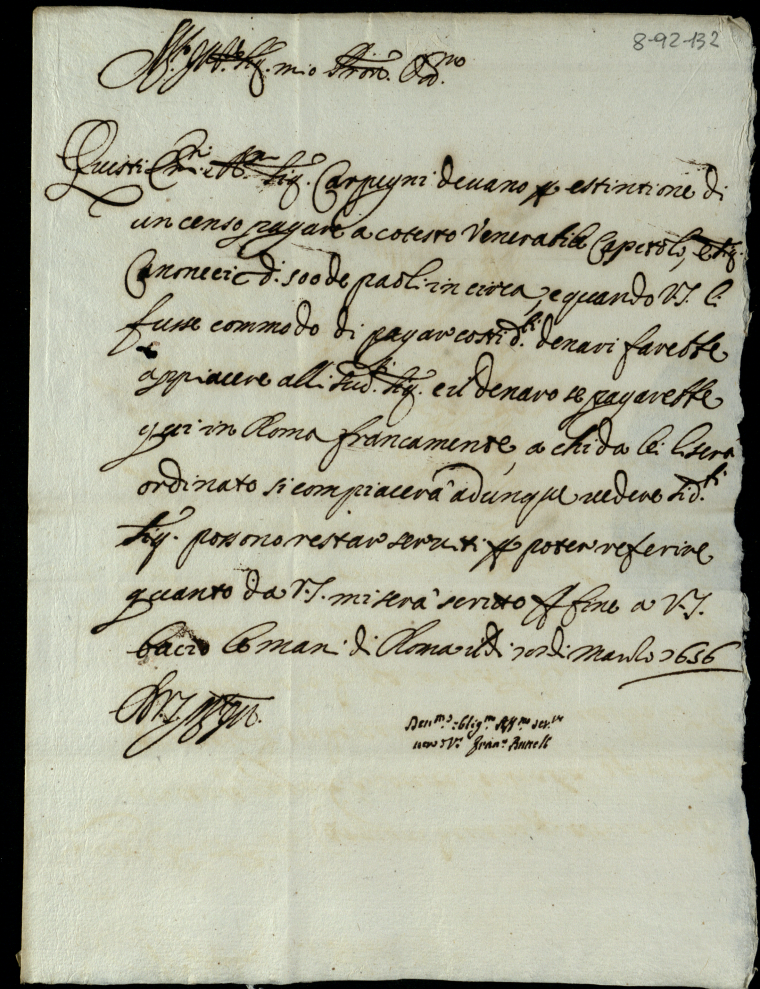 8-92-132
mio Pron. Col.mo
Questi Sig. Carpegni devano p estintione di
un censo pagare a cotesto Venerabile Capitolo, e Sig.
Canoneci d. 500 de paoli in circa, e quando V.S. li
fusse commodo di pagar costi d.ti denari farebbe
appiacere alli sud.ti Sig. e il denaro se pagarebbe
qui in Roma francamente, a chi da lei li sera
ordinato si compiacerà adunque vedere si d.ti
Sig. possono restar seruiti p poter referire
quanto da V.S. mi serà scritto p fine a V.S.
bacio le mani di Roma il di Marzo 1656
D V.S.
Fran.